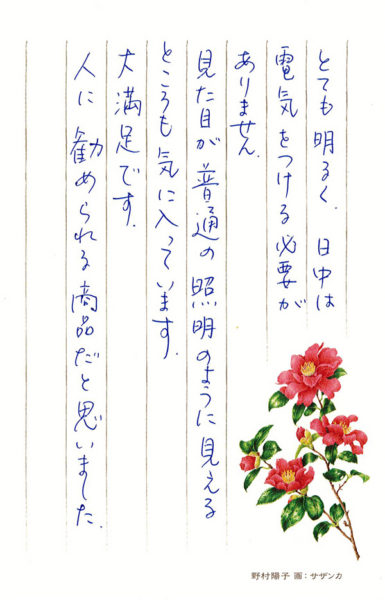 とても明るく、日中は
電気をつける必要が
ありません。
見た目が普通の照明のように見える
ところも気に入っています。
大満足です。
人に勧められる商品だと思いました。
野村陽子 画：サザンカ